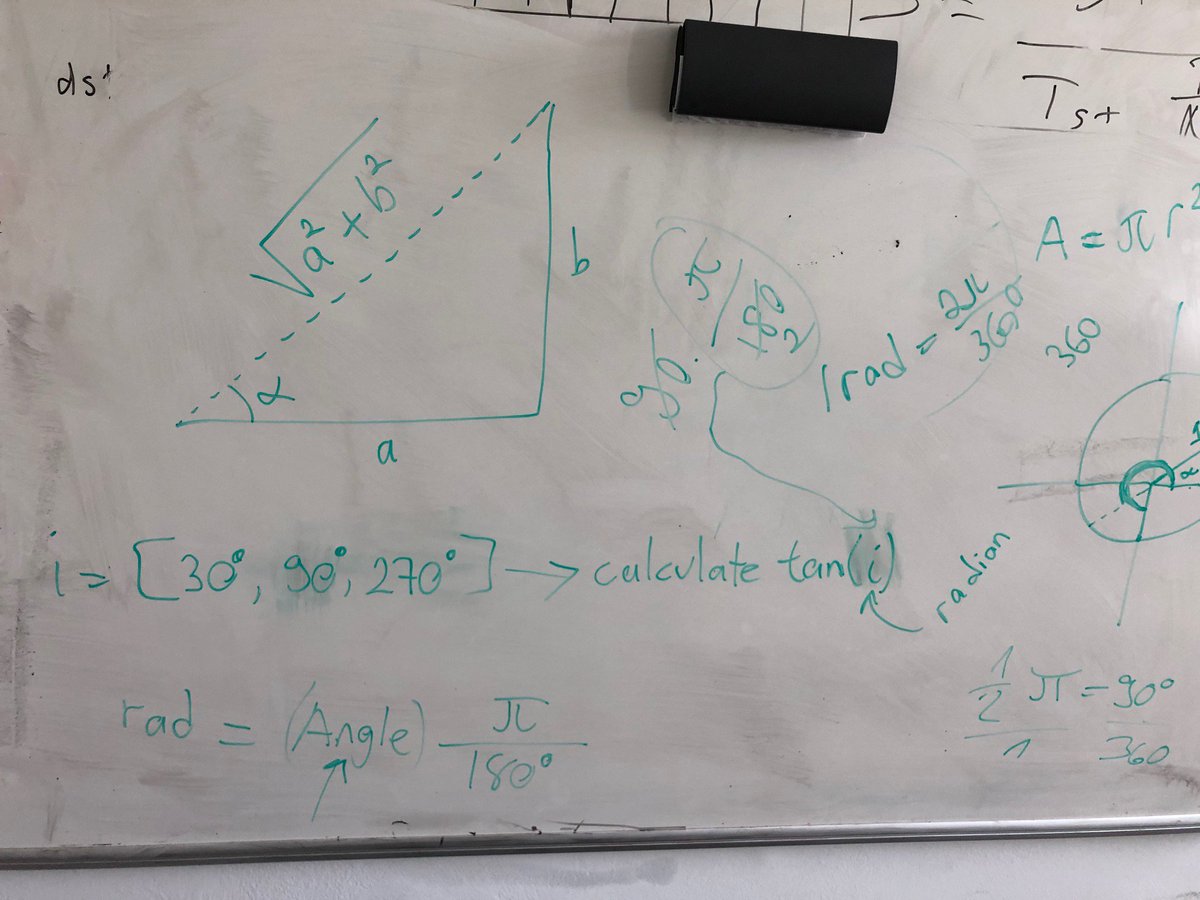 ds
T st
√a² + b²
b
α
a
90. π/180 2
1rad = 2π/360°
A = π r²
360
α
i = [30°, 90°, 270°] → calculate tan(i)
radian
rad = (Angle) π/180°
1/2 π = 90°
1 360